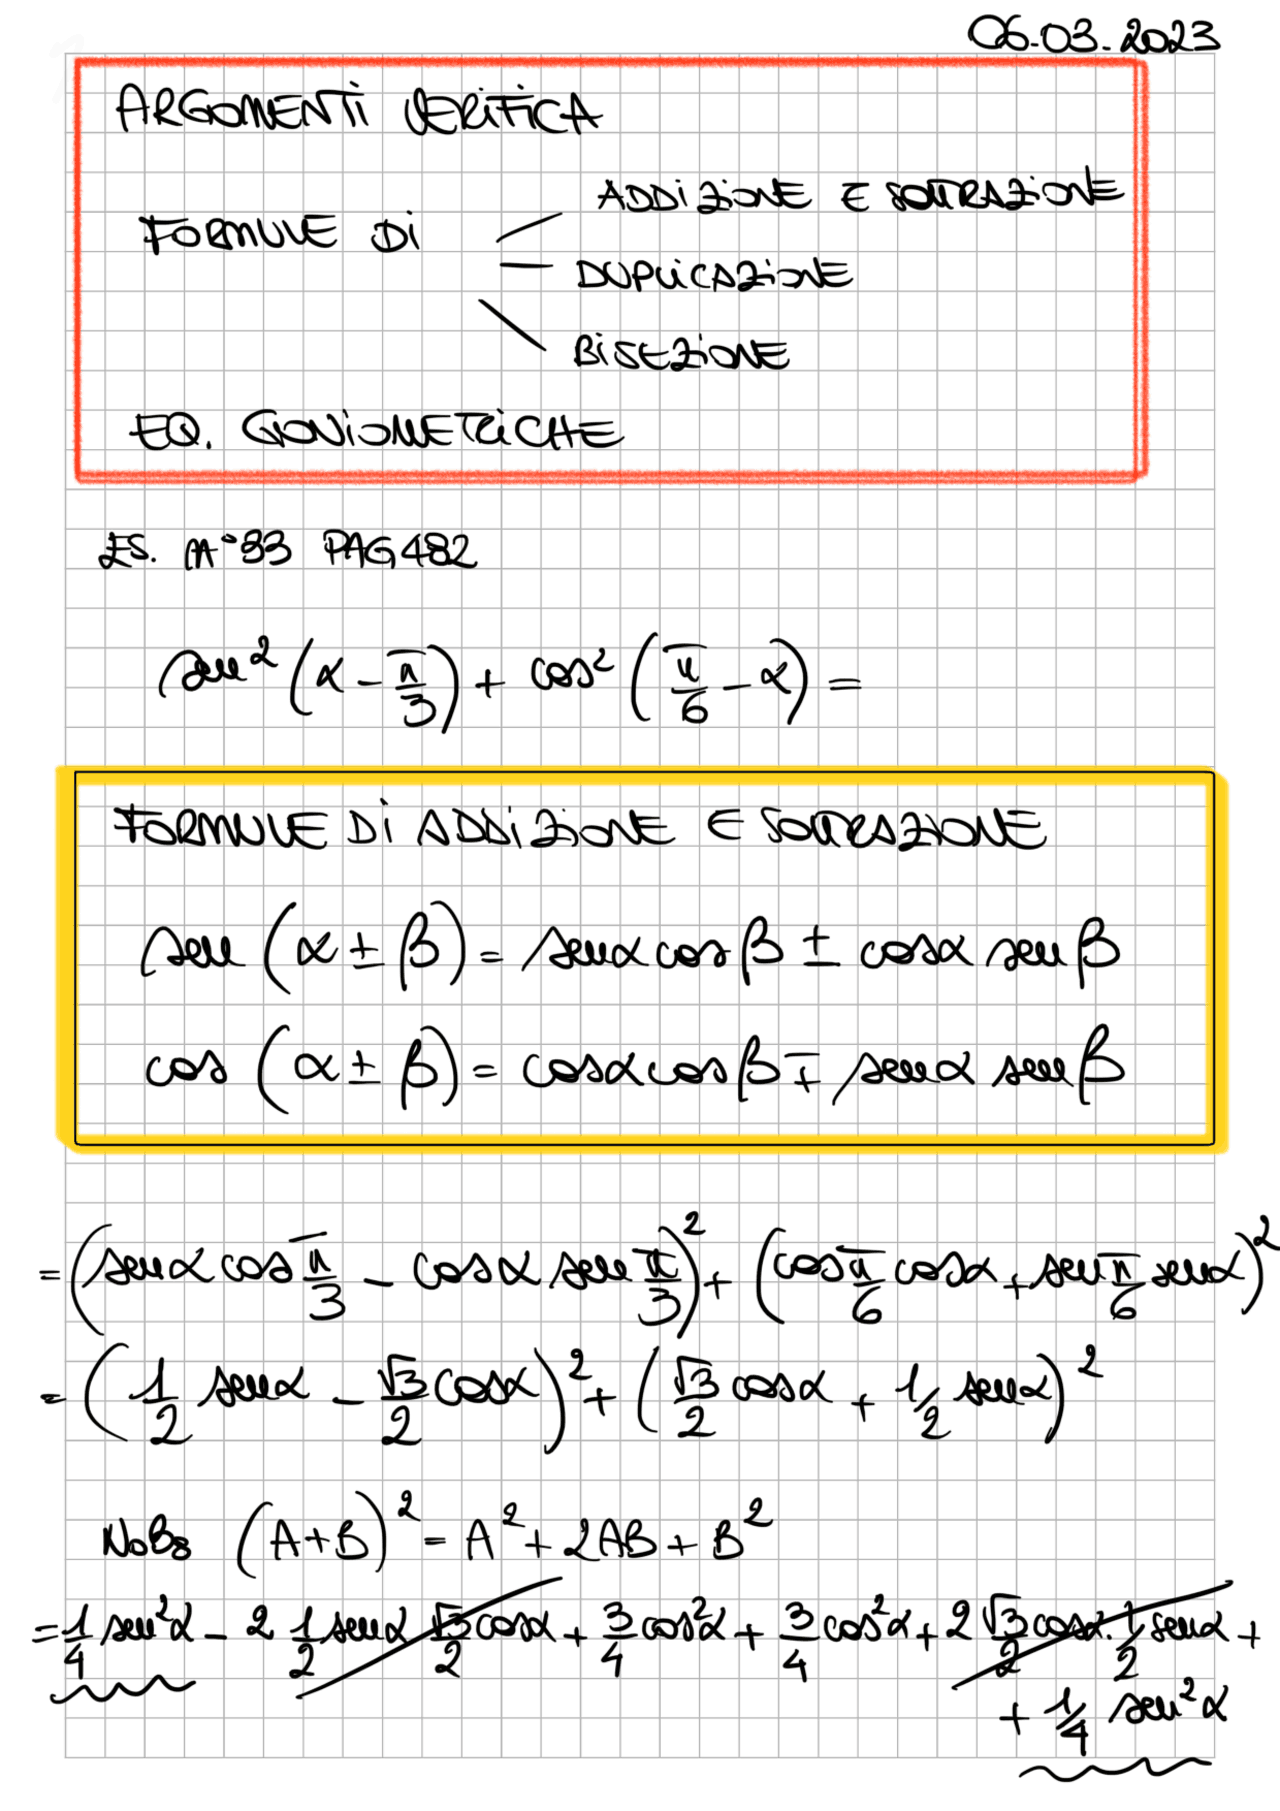 06.03.2023
ARGOMENTI VERIFICA
ADDIZIONE E SOTTRAZIONE
FORMULE DI
DUPLICAZIONE
BISEZIONE
EQ. GONIOMETRICHE
ES. n°33 PAG 482
sen² (α - π/3) + cos² (π/6 - α) =
FORMULE DI ADDIZIONE E SOTTRAZIONE
sen (α ± β) = senα cosβ ± cosα senβ
cos (α ± β) = cosα cosβ ∓ senα senβ
= (senα cos π/3 - cosα sen π/3)² + (cos π/6 cosα + sen π/6 senα)²
= (1/2 senα - √3/2 cosα)² + (√3/2 cosα + 1/2 senα)²
(A+B)² = A² + 2AB + B²
= 1/4 sen²α - 2 1/2 senα √3/2 cosα + 3/4 cos²α + 3/4 cos²α + 2 √3/2 cosα · 1/2 senα +
+ 1/4 sen²α